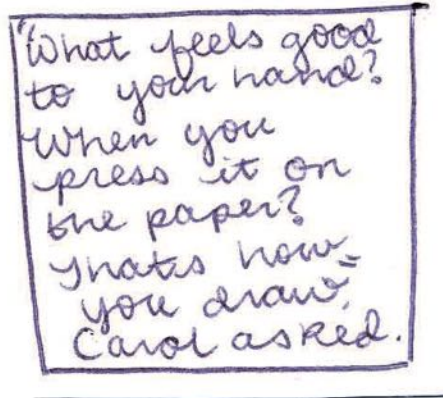 "What feels good
to your hand?
When you
press it on
the paper?
That's how
you draw,"
Carol asked.